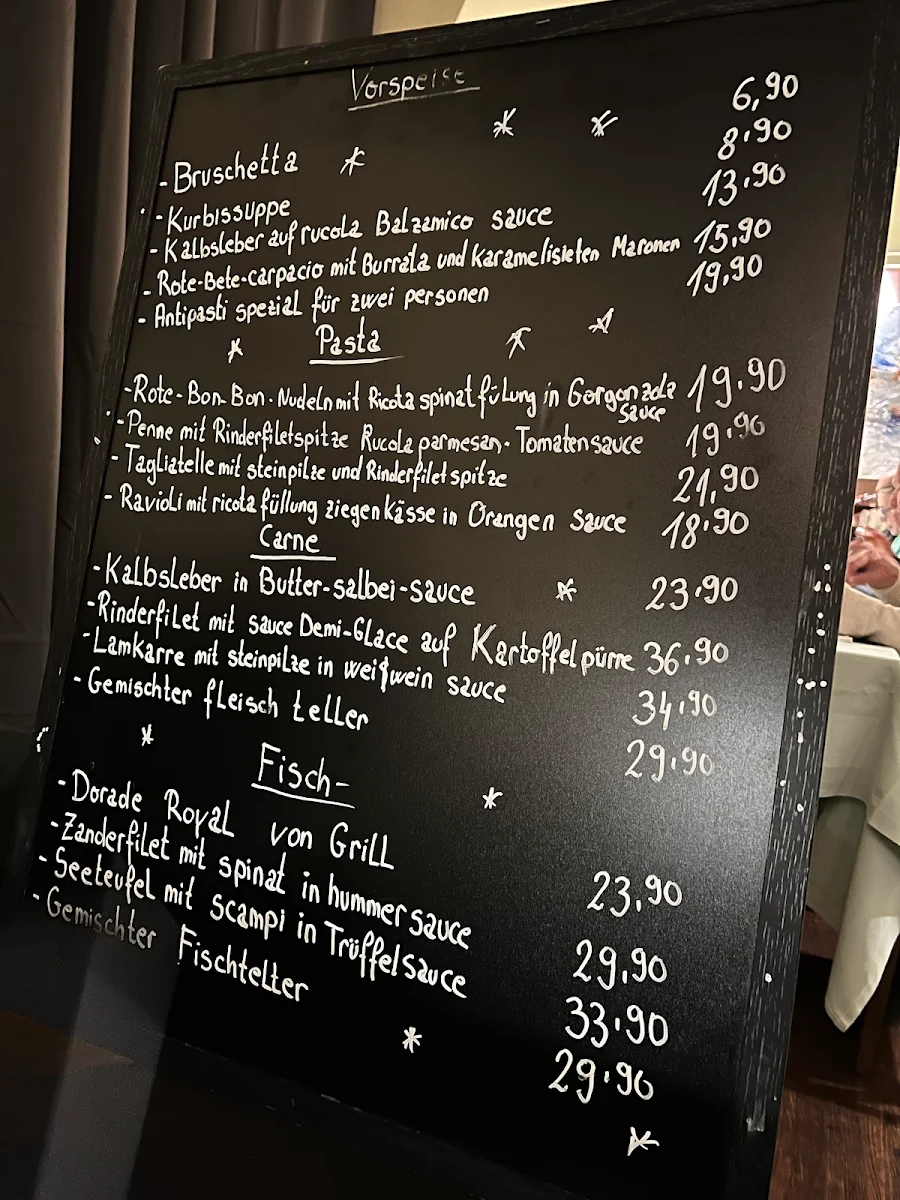 Vorspeise
- Bruschetta 6,90
- Kurbissuppe 8.90
- Kalbsleber auf rucola Balzamico sauce 13.90
- Rote-Bete-carpacio mit Burrata und karamelisieten Maronen 15,90
- Antipasti spezial für zwei personen 19,90
Pasta
- Rote-Bon-Bon-Nudeln mit Ricota spinat fülung in Gorgonzola 19.90
sauce
- Penne mit Rinderfiletspitze Rucola parmesan-Tomatensauce 19.90
- Tagliatelle mit steinpilze und Rinderfiletspitze 21,90
- Ravioli mit ricota füllung ziegenkässe in Orangen sauce 18.90
Carne
- Kalbsleber in Butter-salbei-sauce 23.90
- Rinderfilet mit sauce Demi-Glace auf Kartoffelpürre 36.90
- Lamkarre mit steinpilze in weißwein sauce 34.90
- Gemischter fleisch teller 29.90
Fisch-
- Dorade Royal von Grill 23,90
- Zanderfilet mit spinat in hummer sauce 29,90
- Seeteufel mit scampi in Trüffelsauce 33.90
- Gemischter Fischteller 29.90